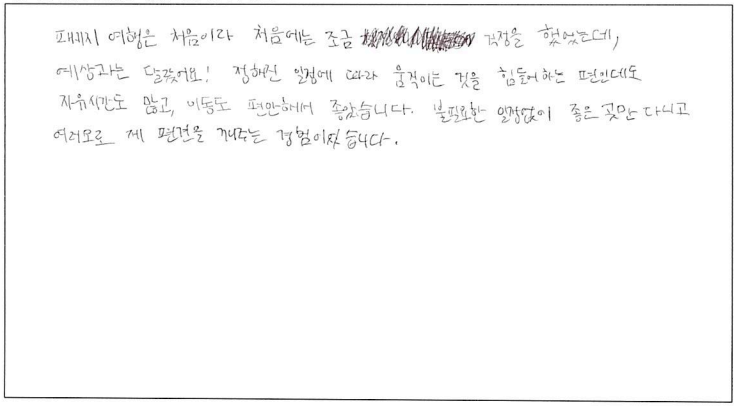 패키지 여행은 처음이라 처음에는 조금 걱정을 했었는데,
예상과는 달랐어요! 정해진 일정에 따라 움직이는 것을 힘들어하는 편인데도
자유시간도 많고, 이동도 편안해서 좋았습니다. 불필요한 일정없이 좋은 곳만 다니고
여러모로 제 편견을 깨주는 경험이었습니다.